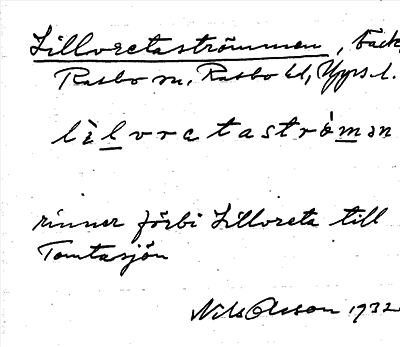 Lillvretaströmmen, bäck,
Rasbo sn, Rasbo hd, Upps. l.
lìlvretaström̀ən
rinner förbi Lillvreta till
Tomtasjön
Nils Olsson 1932